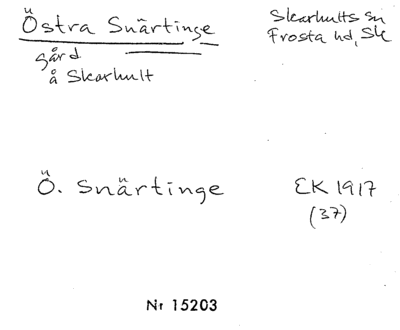 Östra Snärtinge
Skarhults sn
Frosta hd, Sk
gård
å Skarhult
Ö. Snärtinge
EK 1917
(37)
Nr 15203